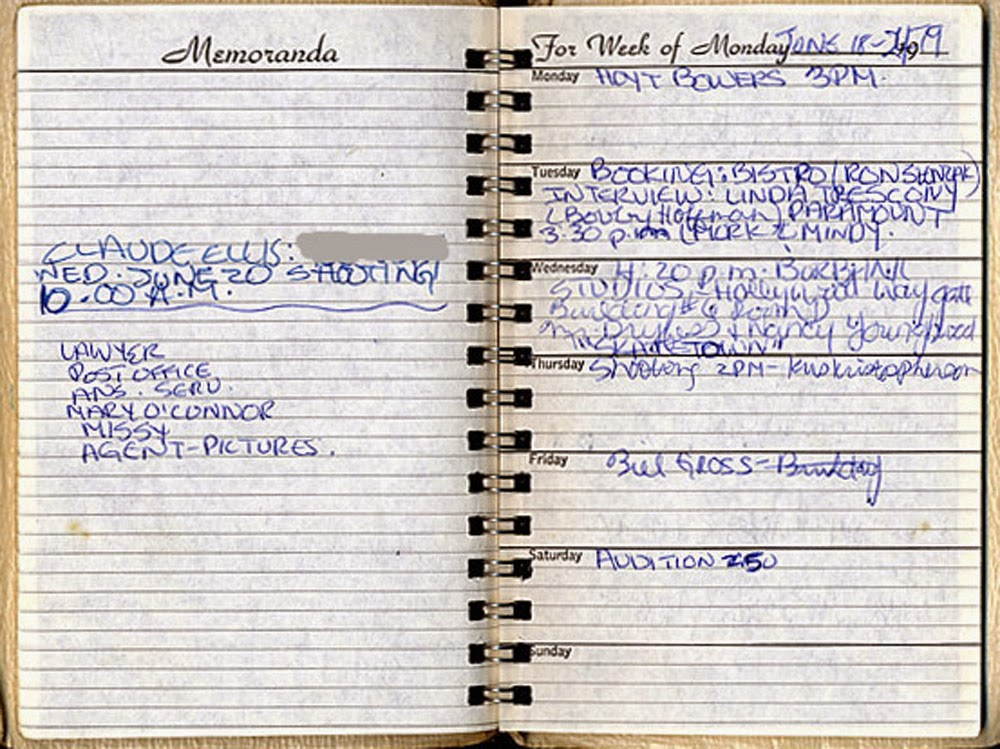 Memoranda
CLAUDE ELLIS:
WED. JUNE 20 SHOOTING!
10:00 A.M.
LAWYER
POST OFFICE
ANS. SERV.
MARY O'CONNOR
MISSY
AGENT-PICTURES.
For Week of Monday JUNE 18-24 79
Monday HOYT BOWERS 3PM.
Tuesday BOOKING: BISTRO (RON
INTERVIEW: LINDA TRESCONY
(Bobby Hoffman) PARAMOUNT
3:30 p.m. (MORK & MINDY.
Wednesday 4:20 p.m. BURBANK
STUDIOS - Hollywood Way gate
Building #6 Room
& Nancy Youngblood
"SKATETOWN"
Thursday Shooting 2PM - Kris Kristopherson
Friday Bill GROSS -
Saturday AUDITION 250
Sunday